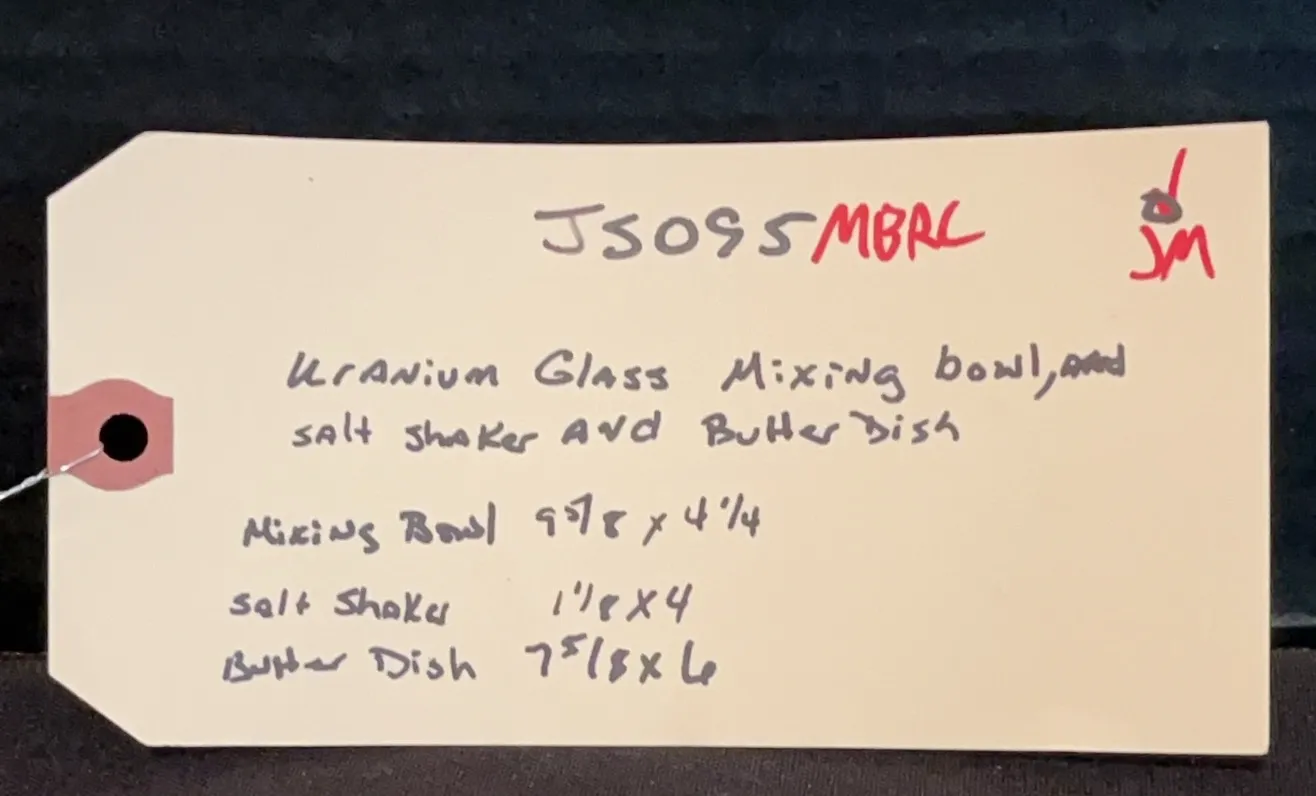 JS095 MBRC
JM
Uranium Glass Mixing bowl, and
salt shaker and Butter Dish
Mixing Bowl 9 5/8 x 4 1/4
Salt Shaker 1 1/8 x 4
Butter Dish 7 5/8 x 6